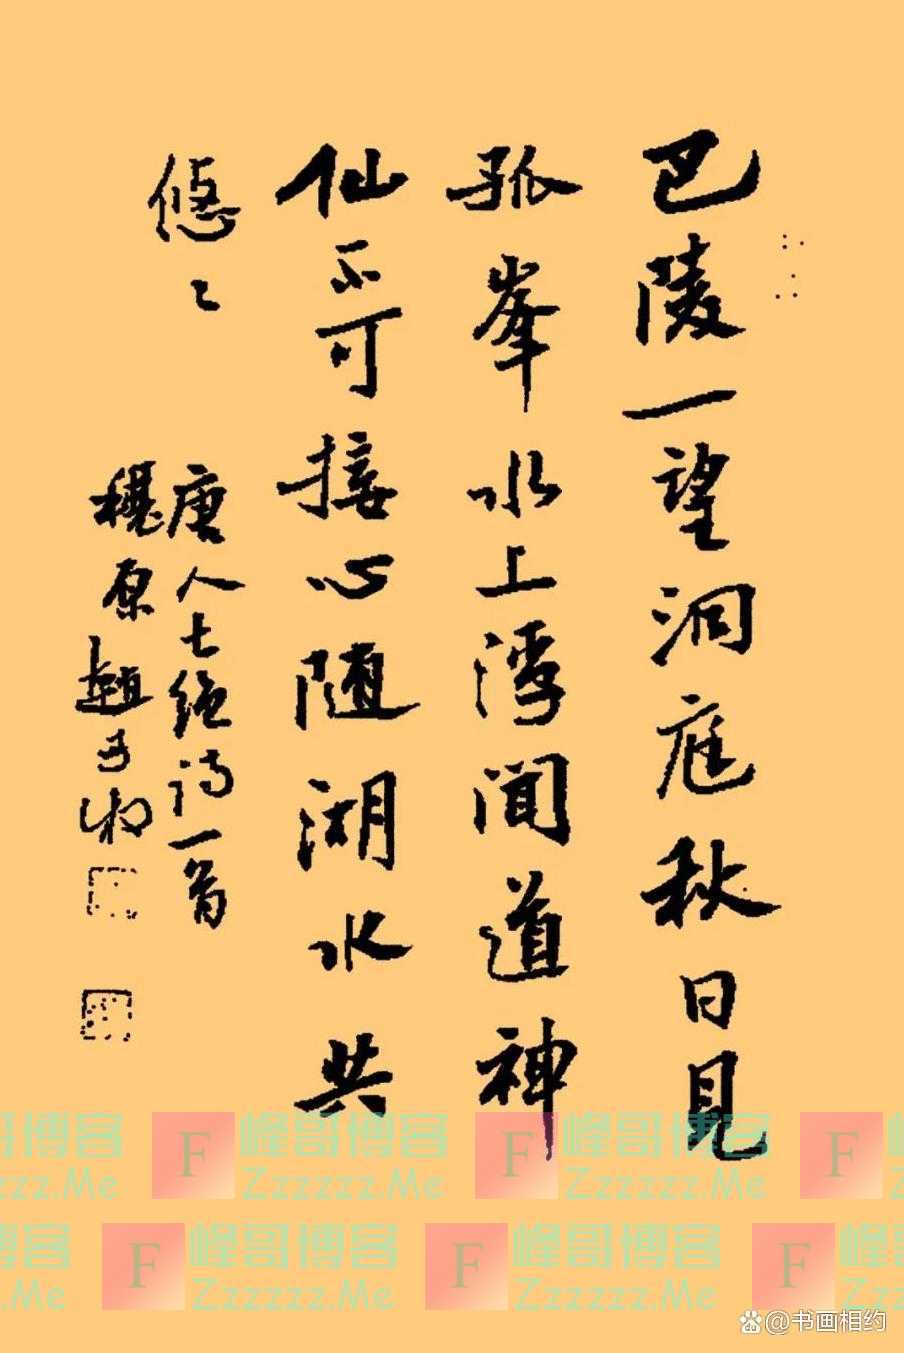 巴陵一望洞庭秋日見
孤峯水上浮聞道神
仙不可接心随湖水共
悠〻
唐人七绝诗一首
穆原趙
峰哥博客
F 峰哥博客
F 峰哥博客
F
Zzzzz.Me
Zzzzz.Me
Zzzzz.Me
F 峰哥博客
F 峰哥博客
F 峰哥
Zzzzz.Me
Zzzzz.Me
Zzzzz.Me
@书画相约